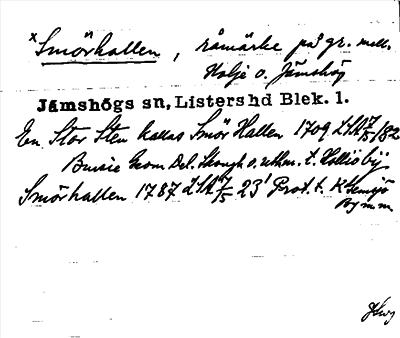 ×Smörhallen, råmärke på gr. mell.
Holje o. Jämshög
Jämshögs sn, Listers hd Blek. l.
En Stor Sten kallas Smör Hallen 1709 LSA
Geom Del. Skough o. uthm. t. Holliö bÿ
Smörhallen 1787 LSA 23¹ Prot. t.
By m.m.